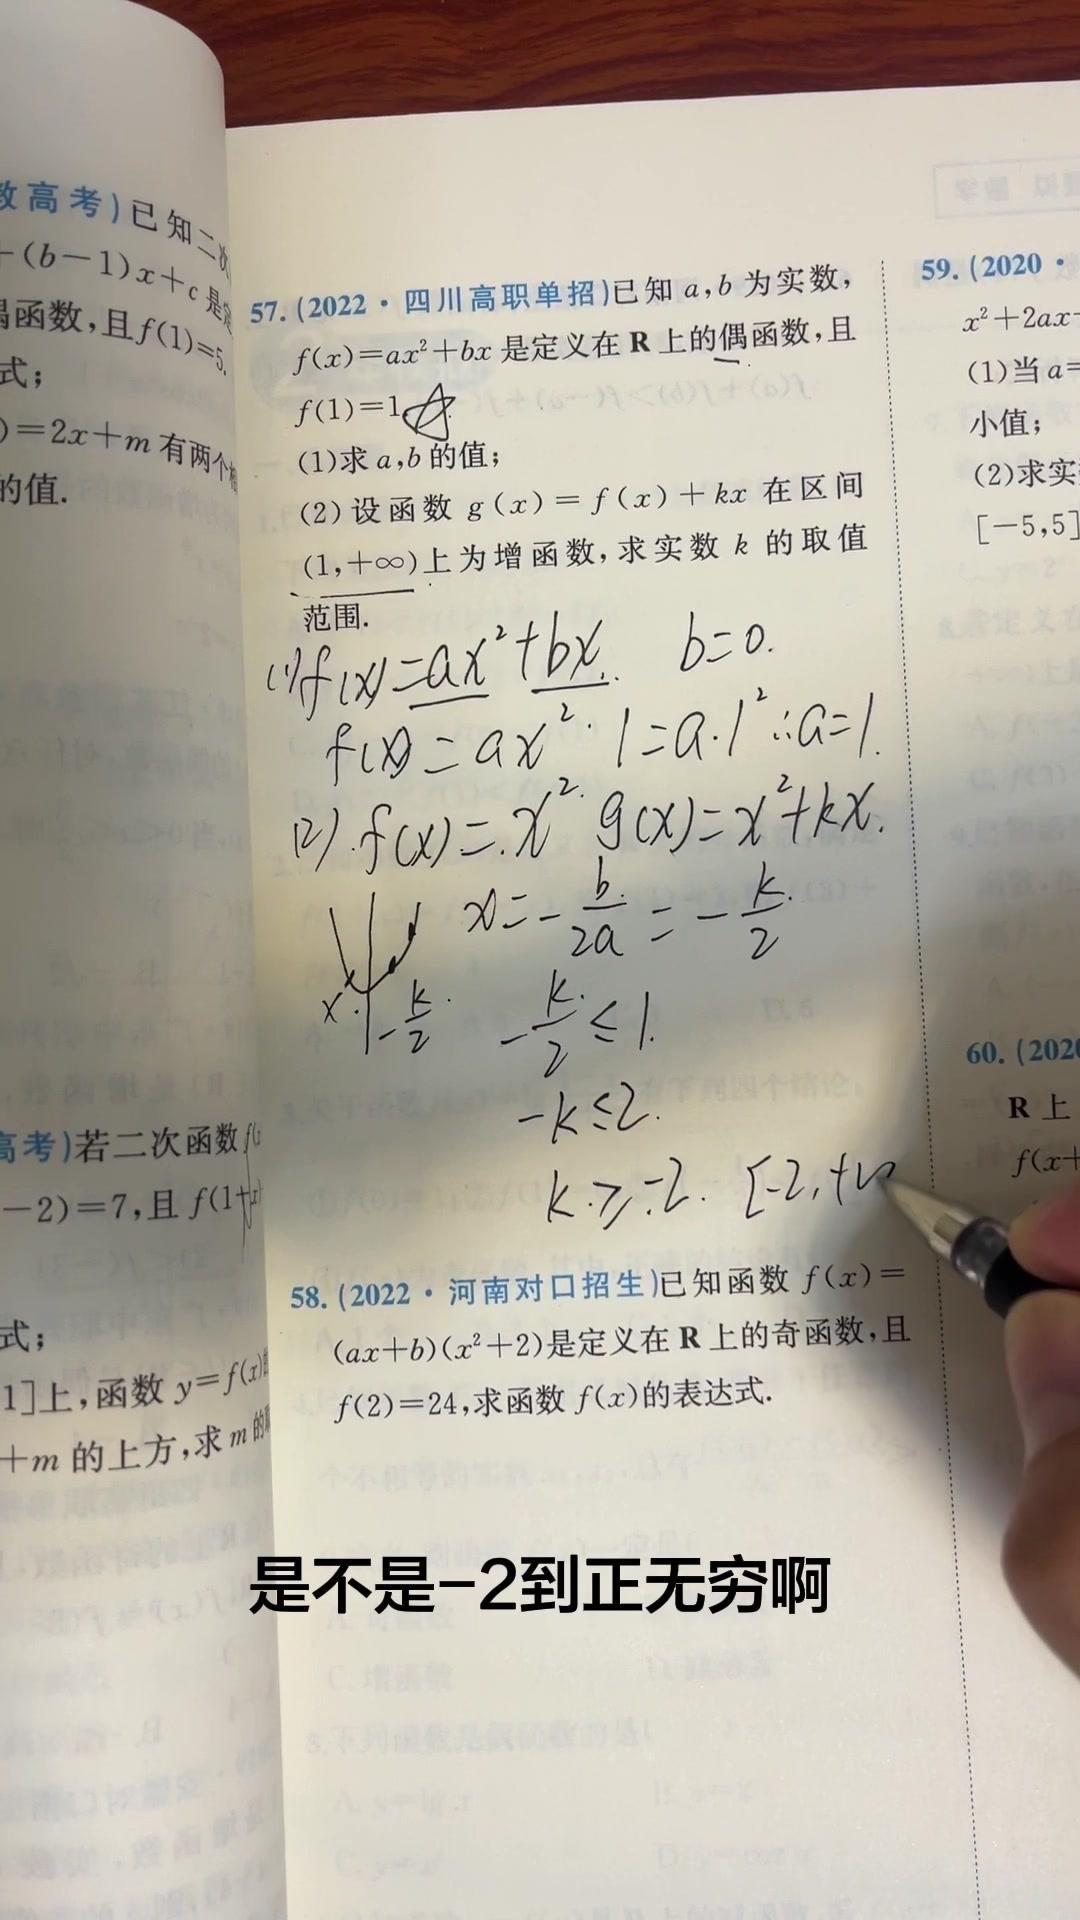 教高考)已知二次
+(b-1)x+c是定
偶函数,且f(1)=5.
式;
)=2x+m有两个相
的值.
高考)若二次函数f(x
-2)=7,且f(1+x)
式;
1]上,函数y=f(x)的
+m的上方,求m的取
57.(2022·四川高职单招)已知a,b为实数,
f(x)=ax²+bx是定义在R上的偶函数,且
f(1)=1.
(1)求a,b的值;
(2)设函数g(x)=f(x)+kx在区间
(1,+∞)上为增函数,求实数k的取值
范围.
(1)f(x)=ax²+bx. b=0.
f(x)=ax². 1=a·1² ∴a=1.
(2).f(x)=x². g(x)=x²+kx.
x=-b/2a=-k/2
x. -k/2 -k/2≤1.
-k≤2.
k≥-2. [-2,+∞
58.(2022·河南对口招生)已知函数f(x)=
(ax+b)(x²+2)是定义在R上的奇函数,且
f(2)=24,求函数f(x)的表达式.
59.(2020·
x²+2ax-
(1)当a=
小值;
(2)求实
[-5,5]
60.(2020
R上
f(x+
是不是-2到正无穷啊